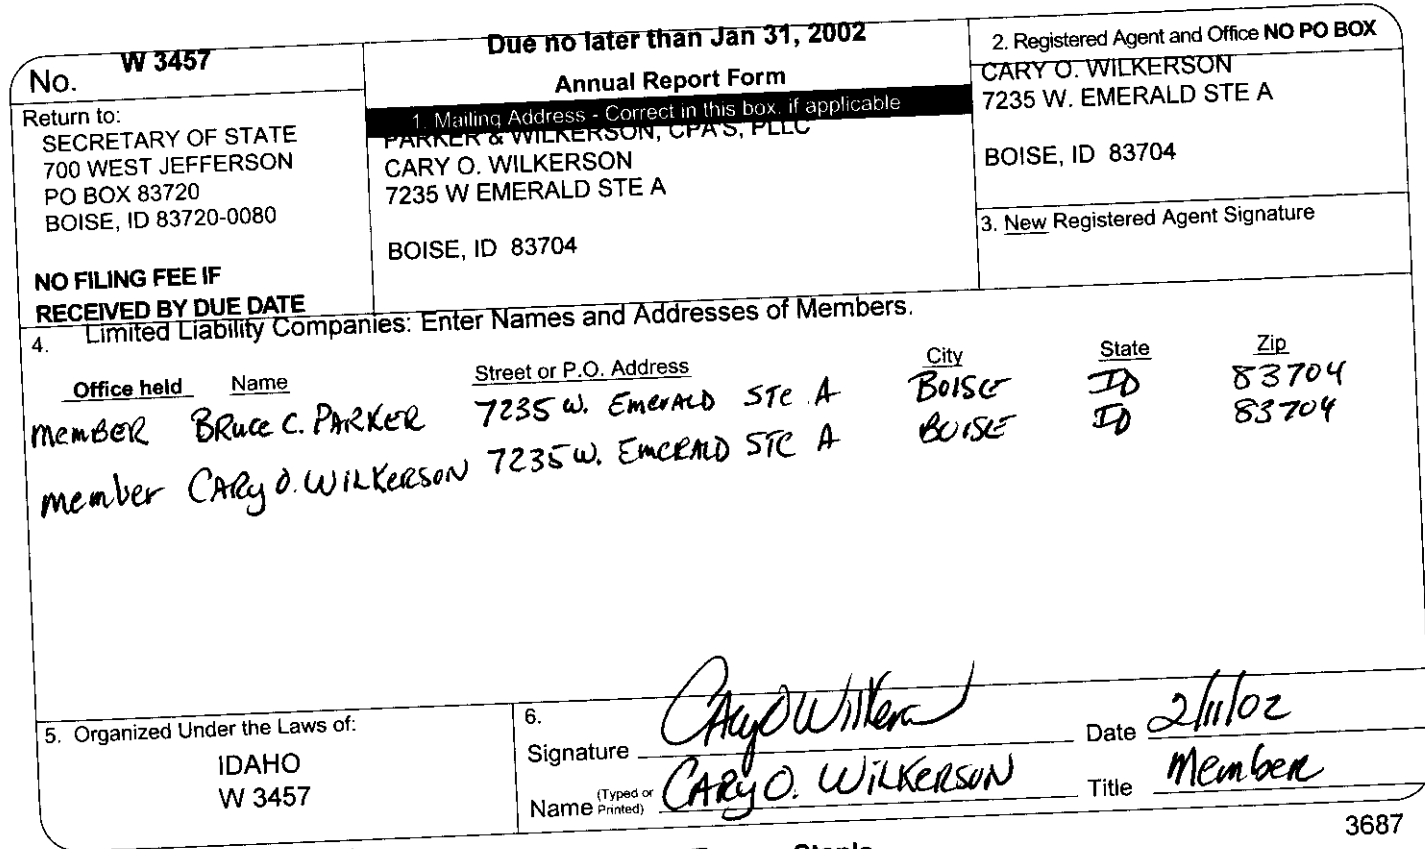 No. W 3457
Return to:
SECRETARY OF STATE
700 WEST JEFFERSON
PO BOX 83720
BOISE, ID 83720-0080
NO FILING FEE IF
RECEIVED BY DUE DATE
Due no later than Jan 31, 2002
Annual Report Form
1. Mailing Address - Correct in this box, if applicable
PARKER & WILKERSON, CPA'S, PLLC
CARY O. WILKERSON
7235 W EMERALD STE A
BOISE, ID 83704
2. Registered Agent and Office NO PO BOX
CARY O. WILKERSON
7235 W. EMERALD STE A
BOISE, ID 83704
3. New Registered Agent Signature
4. Limited Liability Companies: Enter Names and Addresses of Members.
Office held Name Street or P.O. Address City State Zip
MEMBER BRUCE C. PARKER 7235 W. EMERALD STE A BOISE ID 83704
member CARY O. WILKERSON 7235 W. EMERALD STE A BOISE ID 83704
5. Organized Under the Laws of:
IDAHO
W 3457
6.
Signature Cary O Wilkerson Date 2/11/02
Name (Typed or Printed) CARY O. WILKERSON Title Member
3687